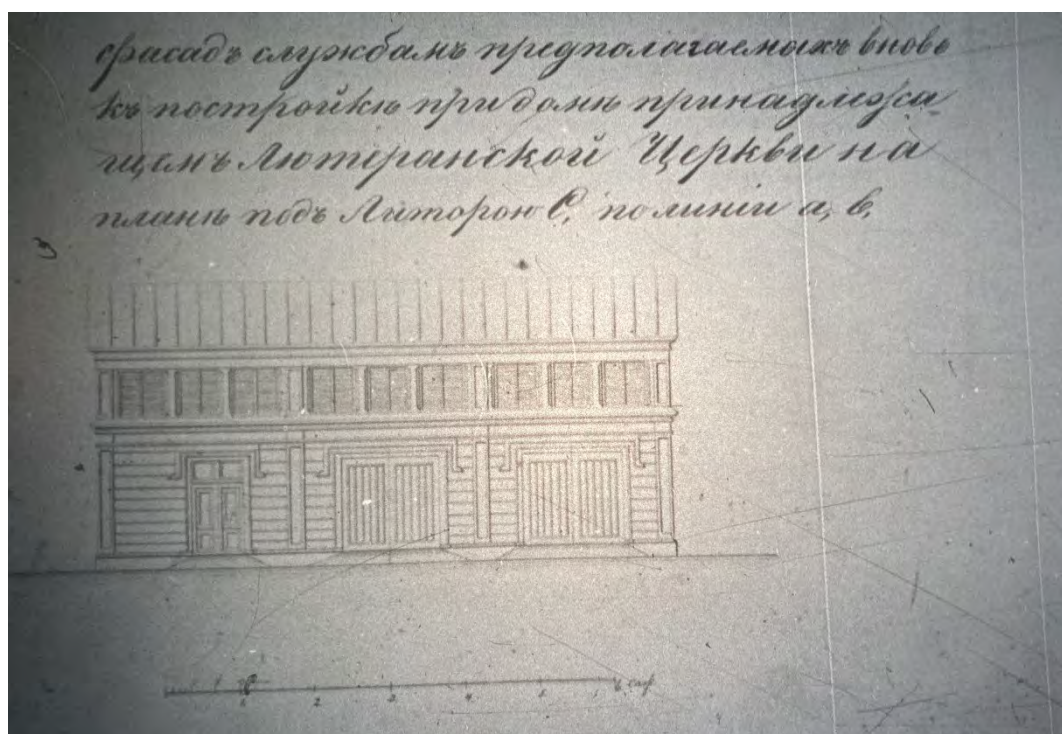 фасадъ службамъ предполагаемыхъ вновь
къ постройкѣ при домѣ принадлежа-
щемъ Лютеранской Церкви на
планѣ подъ Литорою С, по линіи а, в,
1 2 3 4 5 6 саж